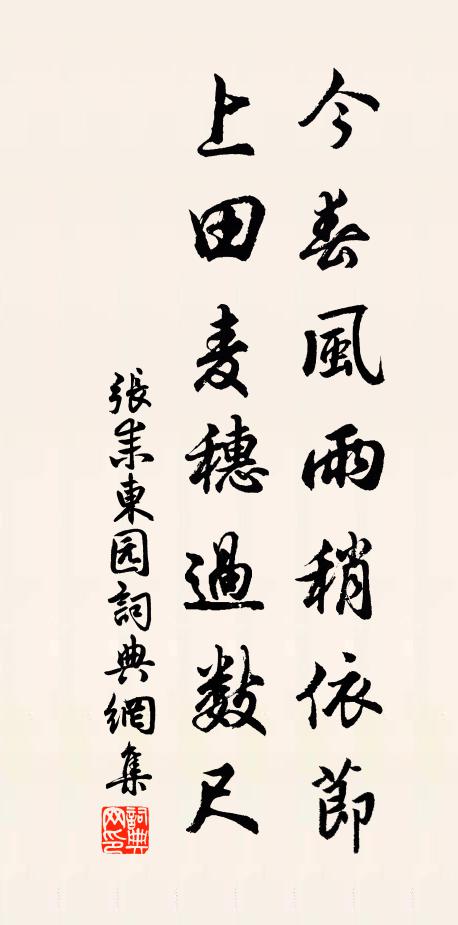 今春風雨稍依節
上田麦穗過數尺
張耒東园詞典網集
詞典网印